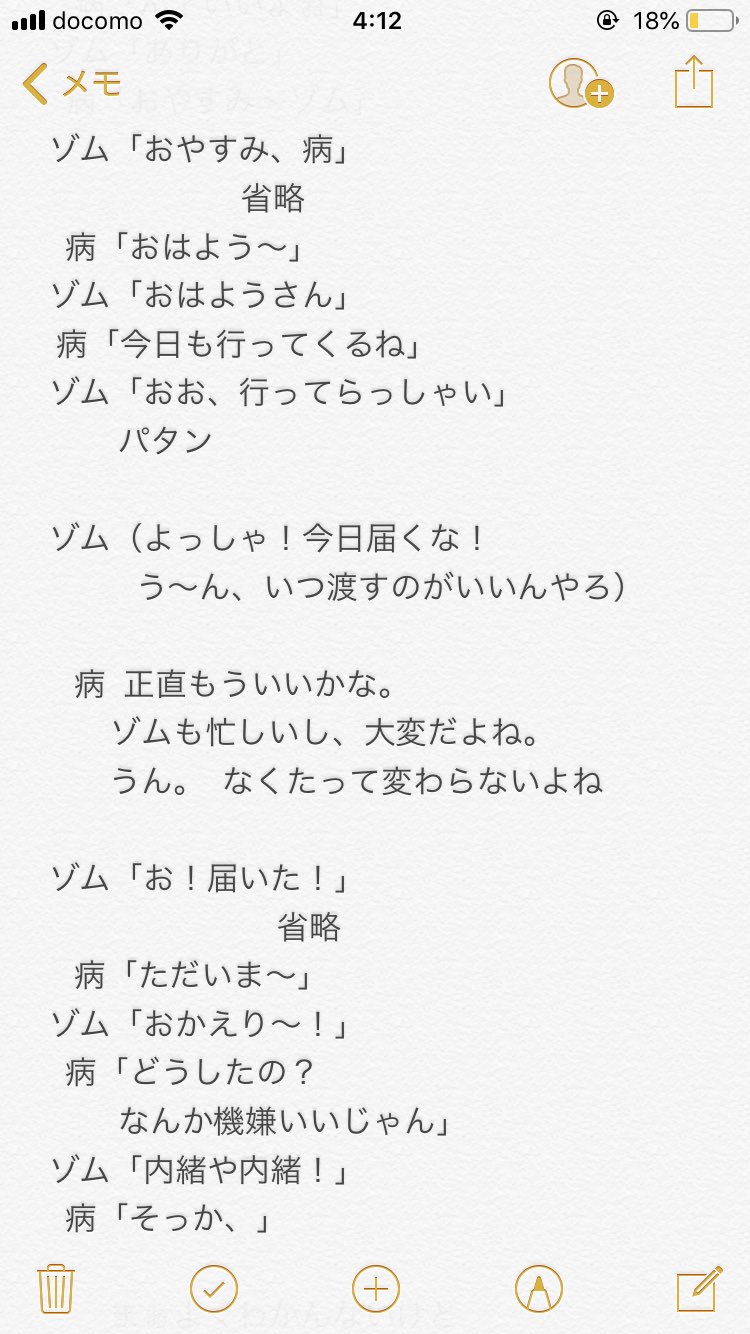 docomo 4:12 18%
メモ
ゾム「おやすみ、病」
省略
病「おはよう〜」
ゾム「おはようさん」
病「今日も行ってくるね」
ゾム「おお、行ってらっしゃい」
パタン
ゾム（よっしゃ！今日届くな！
う〜ん、いつ渡すのがいいんやろ）
病 正直もういいかな。
ゾムも忙しいし、大変だよね。
うん。 なくたって変わらないよね
ゾム「お！届いた！」
省略
病「ただいま〜」
ゾム「おかえり〜！」
病「どうしたの？
なんか機嫌いいじゃん」
ゾム「内緒や内緒！」
病「そっか、」